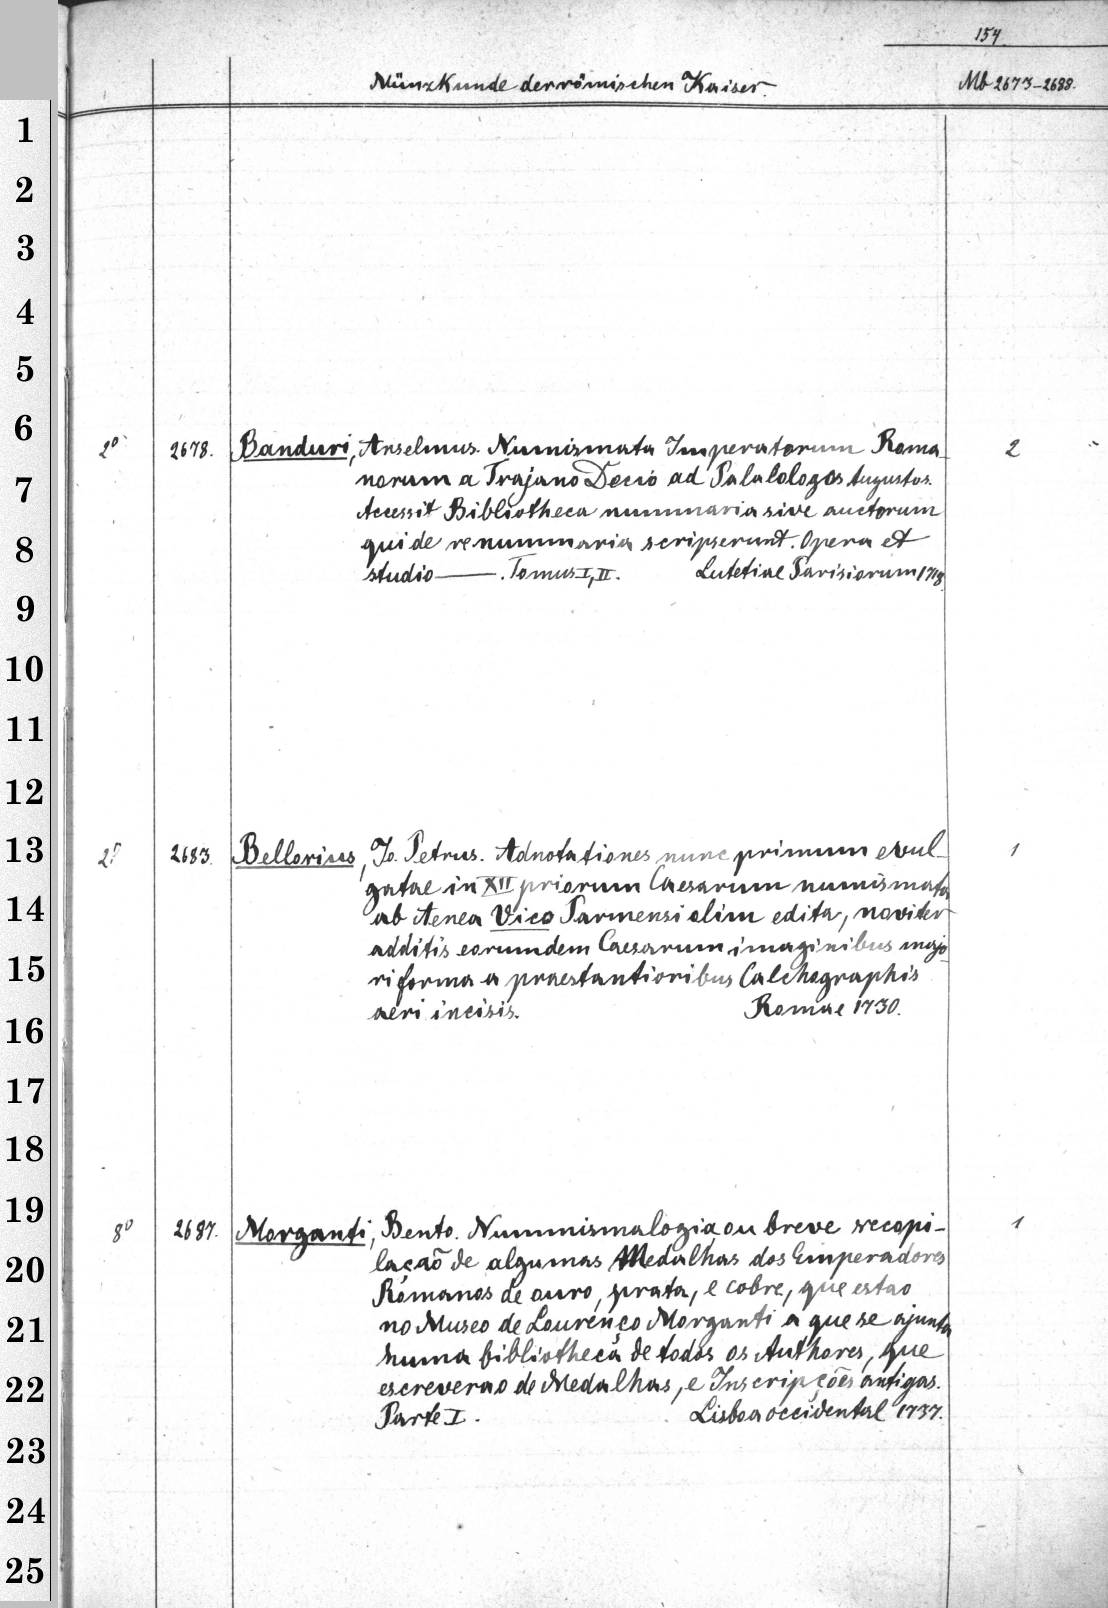 154
Münzkunde der römischen Kaiser. Mb 2673-2688.
1
2
3
4
5
6
7
8
9
10
11
12
13
14
15
16
17
18
19
20
21
22
23
24
25
2° 2678. Banduri, Anselmus. Numismata Imperatorum Roma- 2
norum a Trajano Decio ad Palalologos Augustos.
Accessit Bibliotheca nummaria sive auctorum
qui de re nummaria scripserunt. Opera et
studio ——. Tomus I, II. Lutetiae Parisiorum 1718.
2° 2683. Bellorius, Jo. Petrus. Adnotationes nunc primum evul- 1
gatae in XII priorum Caesarum numismata
ab Aenea Vico Parmensi olim edita, noviter
additis eorumdem Caesarum imaginibus majo-
ri forma a praestantioribus Calchographis
aeri incisis. Romae 1730.
8° 2687. Morganti, Bento. Nummismalogia ou breve recopi- 1
laçaõ de algumas Medalhas dos Emperadores
Romanos de ouro, prata, e cobre, que estao
no Museo de Lourenço Morganti a que se ajunta
huma bibliotheca de todos os Authores, que
escreverao de Medalhas, e Inscripções antigas.
Parte I. Lisboa occidental 1737.